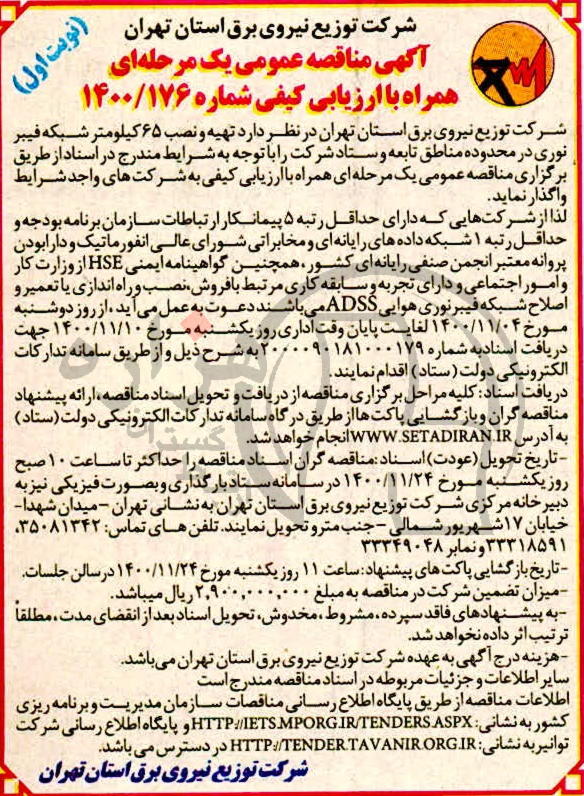 شرکت توزیع نیروی برق استان تهران
(نوبت اول)
آگهی مناقصه عمومی یک مرحله‌ای
همراه با ارزیابی کیفی شماره ۱۴۰۰/۱۷۶
شرکت توزیع نیروی برق استان تهران در نظر دارد تهیه و نصب ۶۵ کیلومتر شبکه فیبر
نوری در محدوده مناطق تابعه و ستاد شرکت را با توجه به شرایط مندرج در اسناد از طریق
برگزاری مناقصه عمومی یک مرحله‌ای همراه با ارزیابی کیفی به شرکت های واجد شرایط
واگذار نماید.
لذا از شرکت‌هایی که دارای حداقل رتبه ۵ پیمانکار ارتباطات سازمان برنامه بودجه و
حداقل رتبه ۱ شبکه داده های رایانه‌ای و مخابراتی شورای عالی انفورماتیک و دارا بودن
پروانه معتبر انجمن صنفی رایانه‌ای کشور، همچنین گواهینامه ایمنی HSE از وزارت کار
و امور اجتماعی و دارای تجربه و سابقه کاری مرتبط با فروش، نصب و راه اندازی یا تعمیر و
اصلاح شبکه فیبر نوری هوایی ADSS می‌باشند دعوت به عمل می‌آید، از روز دوشنبه
مورخ ۱۴۰۰/۱۱/۰۴ لغایت پایان وقت اداری روز یکشنبه مورخ ۱۴۰۰/۱۱/۱۰ جهت
دریافت اسناد به شماره ۲۰۰۰۰۹۰۱۸۱۰۰۰۱۷۹ به شرح ذیل و از طریق سامانه تدارکات
الکترونیکی دولت (ستاد) اقدام نمایند.
دریافت اسناد: کلیه مراحل برگزاری مناقصه از دریافت و تحویل اسناد مناقصه، ارائه پیشنهاد
مناقصه گران و بازگشایی پاکت‌ها از طریق درگاه سامانه تدارکات الکترونیکی دولت (ستاد)
به آدرس WWW.SETADIRAN.IR انجام خواهد شد.
-تاریخ تحویل (عودت) اسناد: مناقصه گران اسناد مناقصه را حداکثر تا ساعت ۱۰ صبح
روز یکشنبه مورخ ۱۴۰۰/۱۱/۲۴ در سامانه ستاد بارگذاری و بصورت فیزیکی نیز به
دبیرخانه مرکزی شرکت توزیع نیروی برق استان تهران به نشانی تهران -میدان شهدا-
خیابان ۱۷ شهریور شمالی -جنب مترو تحویل نمایند. تلفن های تماس: ۳۵۰۸۱۳۴۲،
۳۳۳۱۸۵۹۱ و نمابر ۳۳۳۴۹۰۴۸
-تاریخ بازگشایی پاکت های پیشنهاد: ساعت ۱۱ روز یکشنبه مورخ ۱۴۰۰/۱۱/۲۴ در سالن جلسات.
-میزان تضمین شرکت در مناقصه به مبلغ ۲٫۹۰۰٫۰۰۰٫۰۰۰ ریال میباشد.
-به پیشنهادهای فاقد سپرده، مشروط، مخدوش، تحویل اسناد بعد از انقضای مدت، مطلقاً
ترتیب اثر داده نخواهد شد.
-هزینه درج آگهی به عهده شرکت توزیع نیروی برق استان تهران می‌باشد.
سایر اطلاعات و جزئیات مربوطه در اسناد مناقصه مندرج است
اطلاعات مناقصه از طریق پایگاه اطلاع رسانی مناقصات سازمان مدیریت و برنامه ریزی
کشور به نشانی: HTTP://IETS.MPORG.IR/TENDERS.ASPX و پایگاه اطلاع رسانی شرکت
توانیر به نشانی: HTTP://TENDER.TAVANIR.ORG.IR در دسترس می باشد.
شرکت توزیع نیروی برق استان تهران